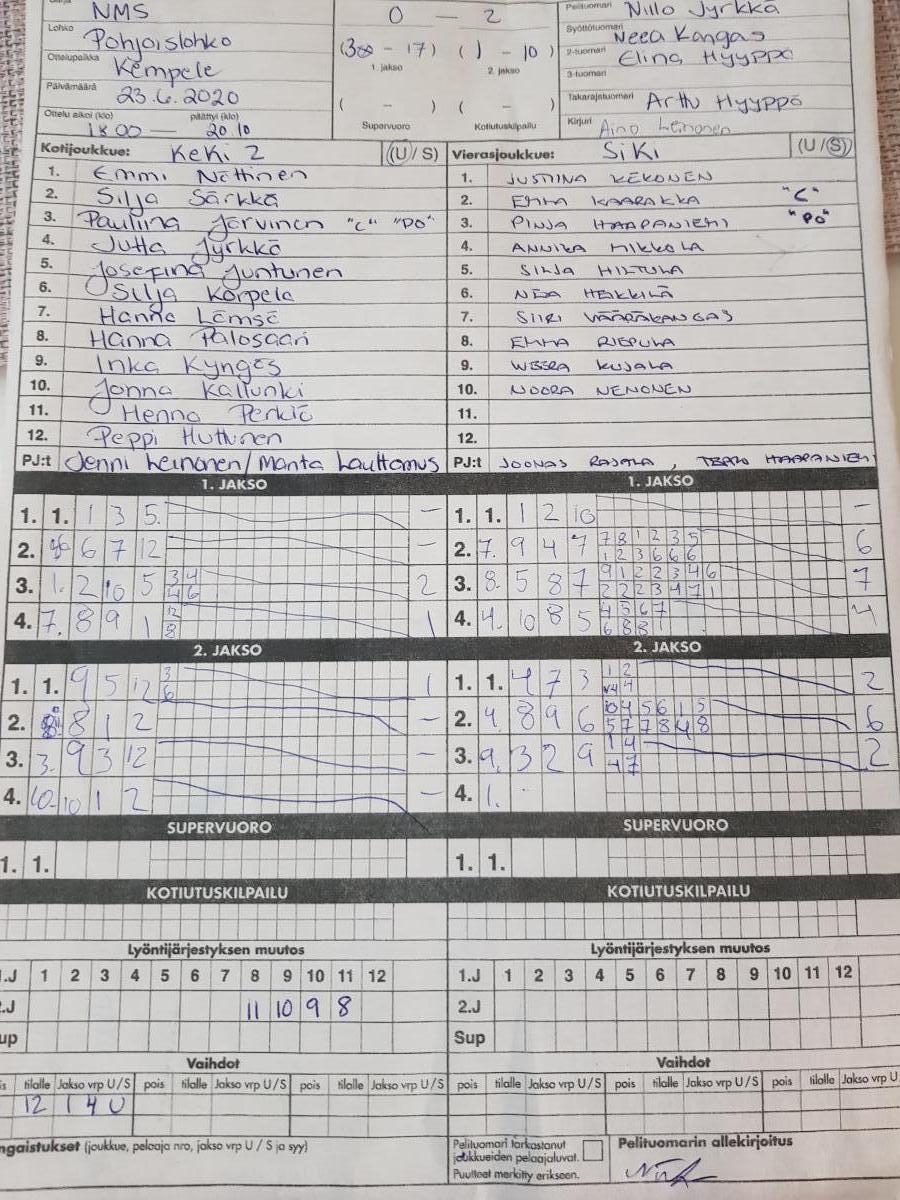 NMS
0 — 2
Pelituomari Niilo Jyrkkä
Lohko Pohjoislohko
(3 – 17) ( ) – 10)
1. jakso 2. jakso
Syöttötuomari Neea Kangas
Ottelupaikka Kempele
2-tuomari Elina Hyyppö
3-tuomari
Päivämäärä 23.6.2020
( – ) ( – )
Takarajatuomari Arttu Hyyppö
Ottelu alkoi (klo) päättyi (klo)
18.00 — 20.10
Supervuoro Kotiutuskilpailu
Kirjuri Aino Leinonen
Kotijoukkue: KeKi 2 (U/S) Vierasjoukkue: SiKi (U/S)
1. Emmi Nättinen 1. JUSTIINA KEKONEN
2. Silja Särkkä 2. EMMA KAARAKKA "C"
3. Pauliina Järvinen "C" "PO" 3. PINJA HAAPANIEMI "PO"
4. Jutta Jyrkkä 4. ANNIKA MIKKOLA
5. Josefina Juntunen 5. SILJA HILTULA
6. Silja Korpela 6. NEA HEIKKILÄ
7. Hanna Lämsä 7. SIIRI VÄÄRÄKANGAS
8. Hanna Palosaari 8. EMMA RIEPULA
9. Inka Kyngäs 9. WEERA KUJALA
10. Jonna Kallunki 10. NOORA NENONEN
11. Henna Perkiö 11.
12. Peppi Huttunen 12.
PJ:t Jenni Leinonen / Manta Lauttamus PJ:t JOONAS RAJALA, TERO HAAPANIEMI
1. JAKSO 1. JAKSO
1. 1. 1 3 5. – 1. 1. 1 2 10 –
2. 6 7 12 – 2. 7. 9 4 7 7 8 1 2 3 5 6
1 2 3 6 6 6
3. 1. 2 10 5 3 4 2 3. 8. 5 8 7 9 1 2 2 3 4 6 7
4 6 2 2 2 3 4 7 1
4. 7. 8 9 1 12 1 4. 4. 10 8 5 4 5 6 7 4
8 6 8 8 1
2. JAKSO 2. JAKSO
1. 1. 9 5 12 3 1 1. 1. 4 7 3 1 2 2
6 4 4
2. 8. 8 1 2 – 2. 4. 8 9 6 10 4 5 6 1 5 6
5 7 7 8 4 8
3. 3. 9 3 12 – 3. 9. 3 2 9 1 4 2
4 7
4. 10. 10 1 2 – 4. 1.
SUPERVUORO SUPERVUORO
1. 1. 1. 1.
KOTIUTUSKILPAILU KOTIUTUSKILPAILU
Lyöntijärjestyksen muutos Lyöntijärjestyksen muutos
.J 1 2 3 4 5 6 7 8 9 10 11 12 1.J 1 2 3 4 5 6 7 8 9 10 11 12
.J 11 10 9 8 2.J
up Sup
Vaihdot Vaihdot
is tilalle Jakso vrp U/S pois tilalle Jakso vrp U/S pois tilalle Jakso vrp U/S pois tilalle Jakso vrp U/S pois tilalle Jakso vrp U/S pois tilalle Jakso vrp U
12 1 4 U
ngaistukset (joukkue, pelaaja nro, jakso vrp U / S ja syy)
Pelituomari tarkastanut
joukkueiden pelaajaluvat.
Puutteet merkitty erikseen.
Pelituomarin allekirjoitus